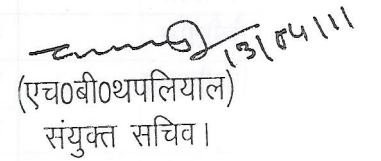 13/04/11
(एच0बी0थपलियाल)
संयुक्त सचिव।